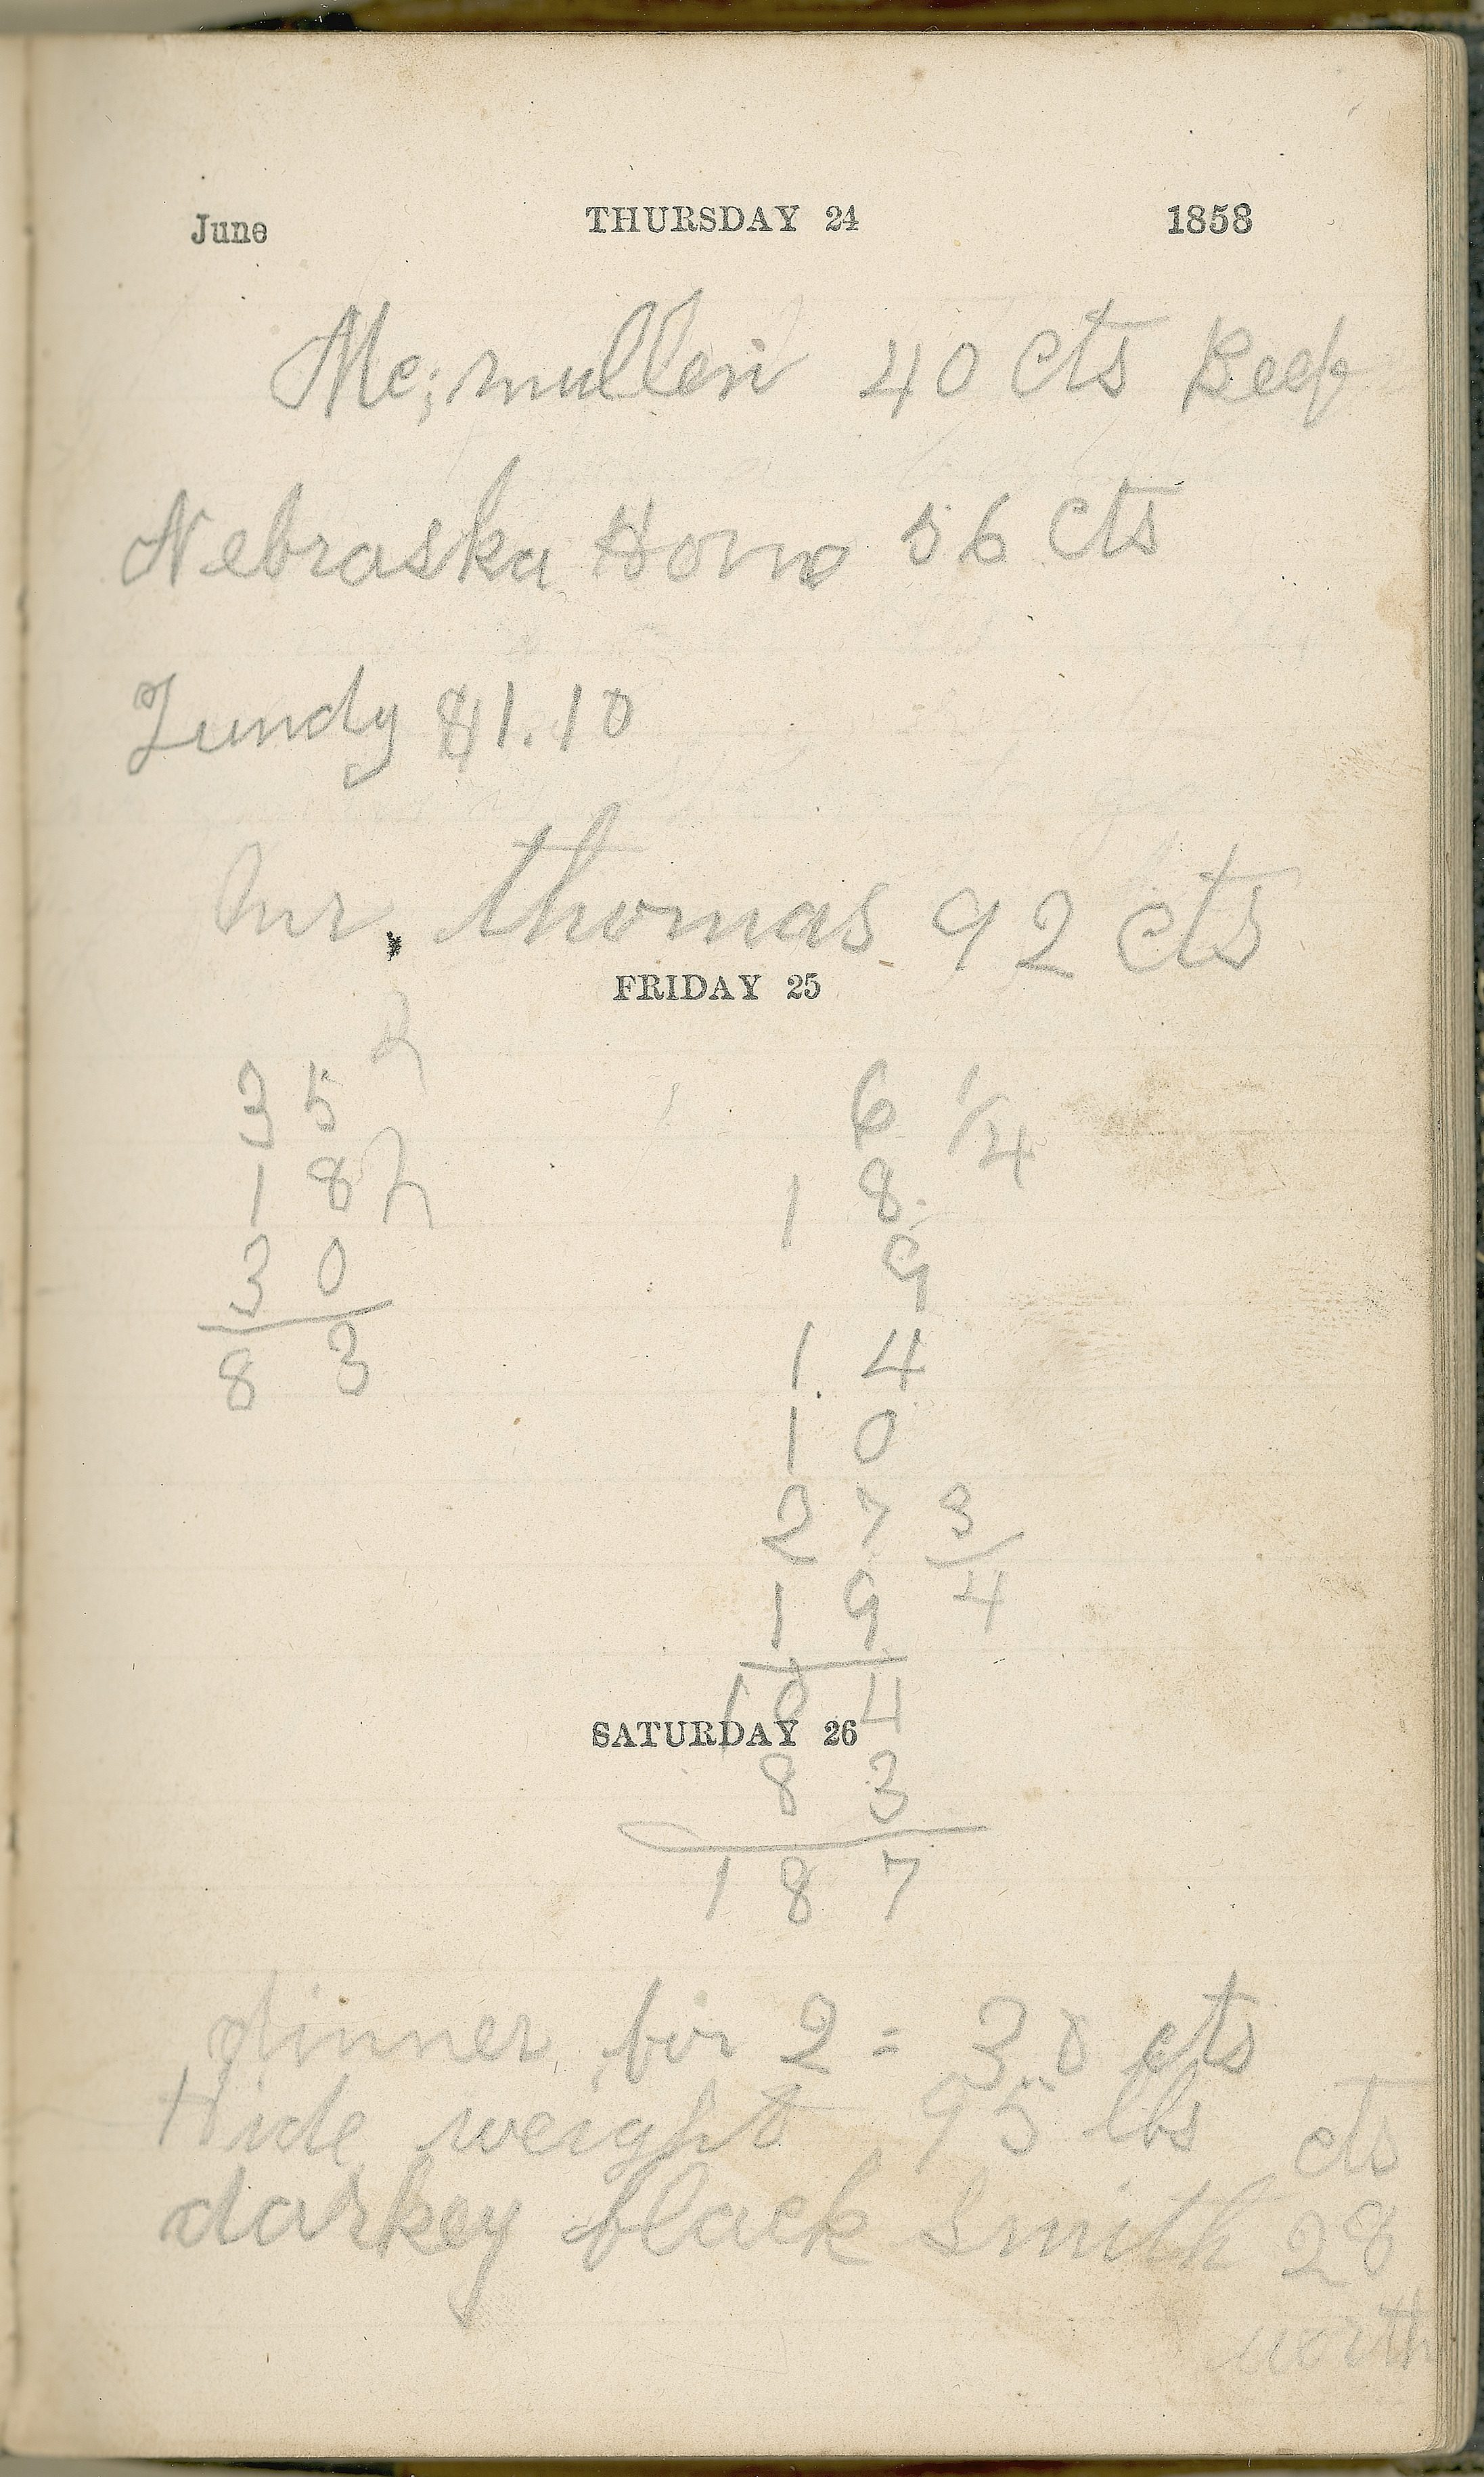 June THURSDAY 24 1858
Mc;mullen 40 cts Beef
Nebraska Hous 56 cts
Lundy $1.10
mr. thomas 92 cts
FRIDAY 25
3 5
1 8
3 0
8 3
6 1/4
1 8
9
1 4
1 0
2 7 3/4
1 9
1 0 4
SATURDAY 26
8 3
1 8 7
dinner for 2 = 30 cts
Hide weight 95 lbs cts
darkey black smith 28
worth